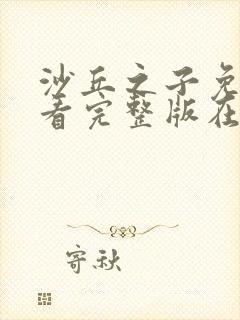 沙丘之子免
看完整版在
寄秋